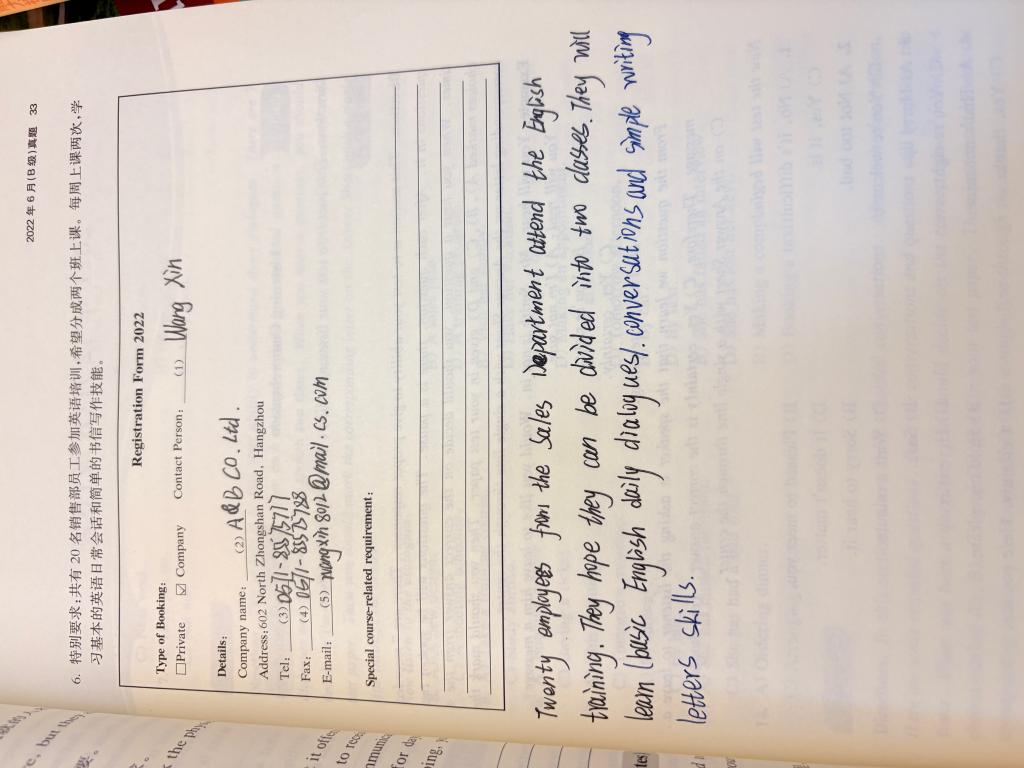 2022 年 6 月(B 级)真题 33
6. 特别要求:共有 20 名销售部员工参加英语培训,希望分成两个班上课。每周上课两次,学
习基本的英语日常会话和简单的书信写作技能。
Registration Form 2022
Type of Booking:
□Private ☑Company Contact Person: (1) Wang Xin
Details:
Company name: (2) A&B CO. Ltd.
Address:602 North Zhongshan Road, Hangzhou
Tel: (3) 0571-85515777
Fax: (4) 0571-85515788
E-mail: (5) wangxin8012@mail.cs.com
Special course-related requirement:
Twenty employees from the Sales Department attend the English
training. They hope they can be divided into two classes. They will
learn (basic English daily dialogues/conversations and simple writing
letters skills.